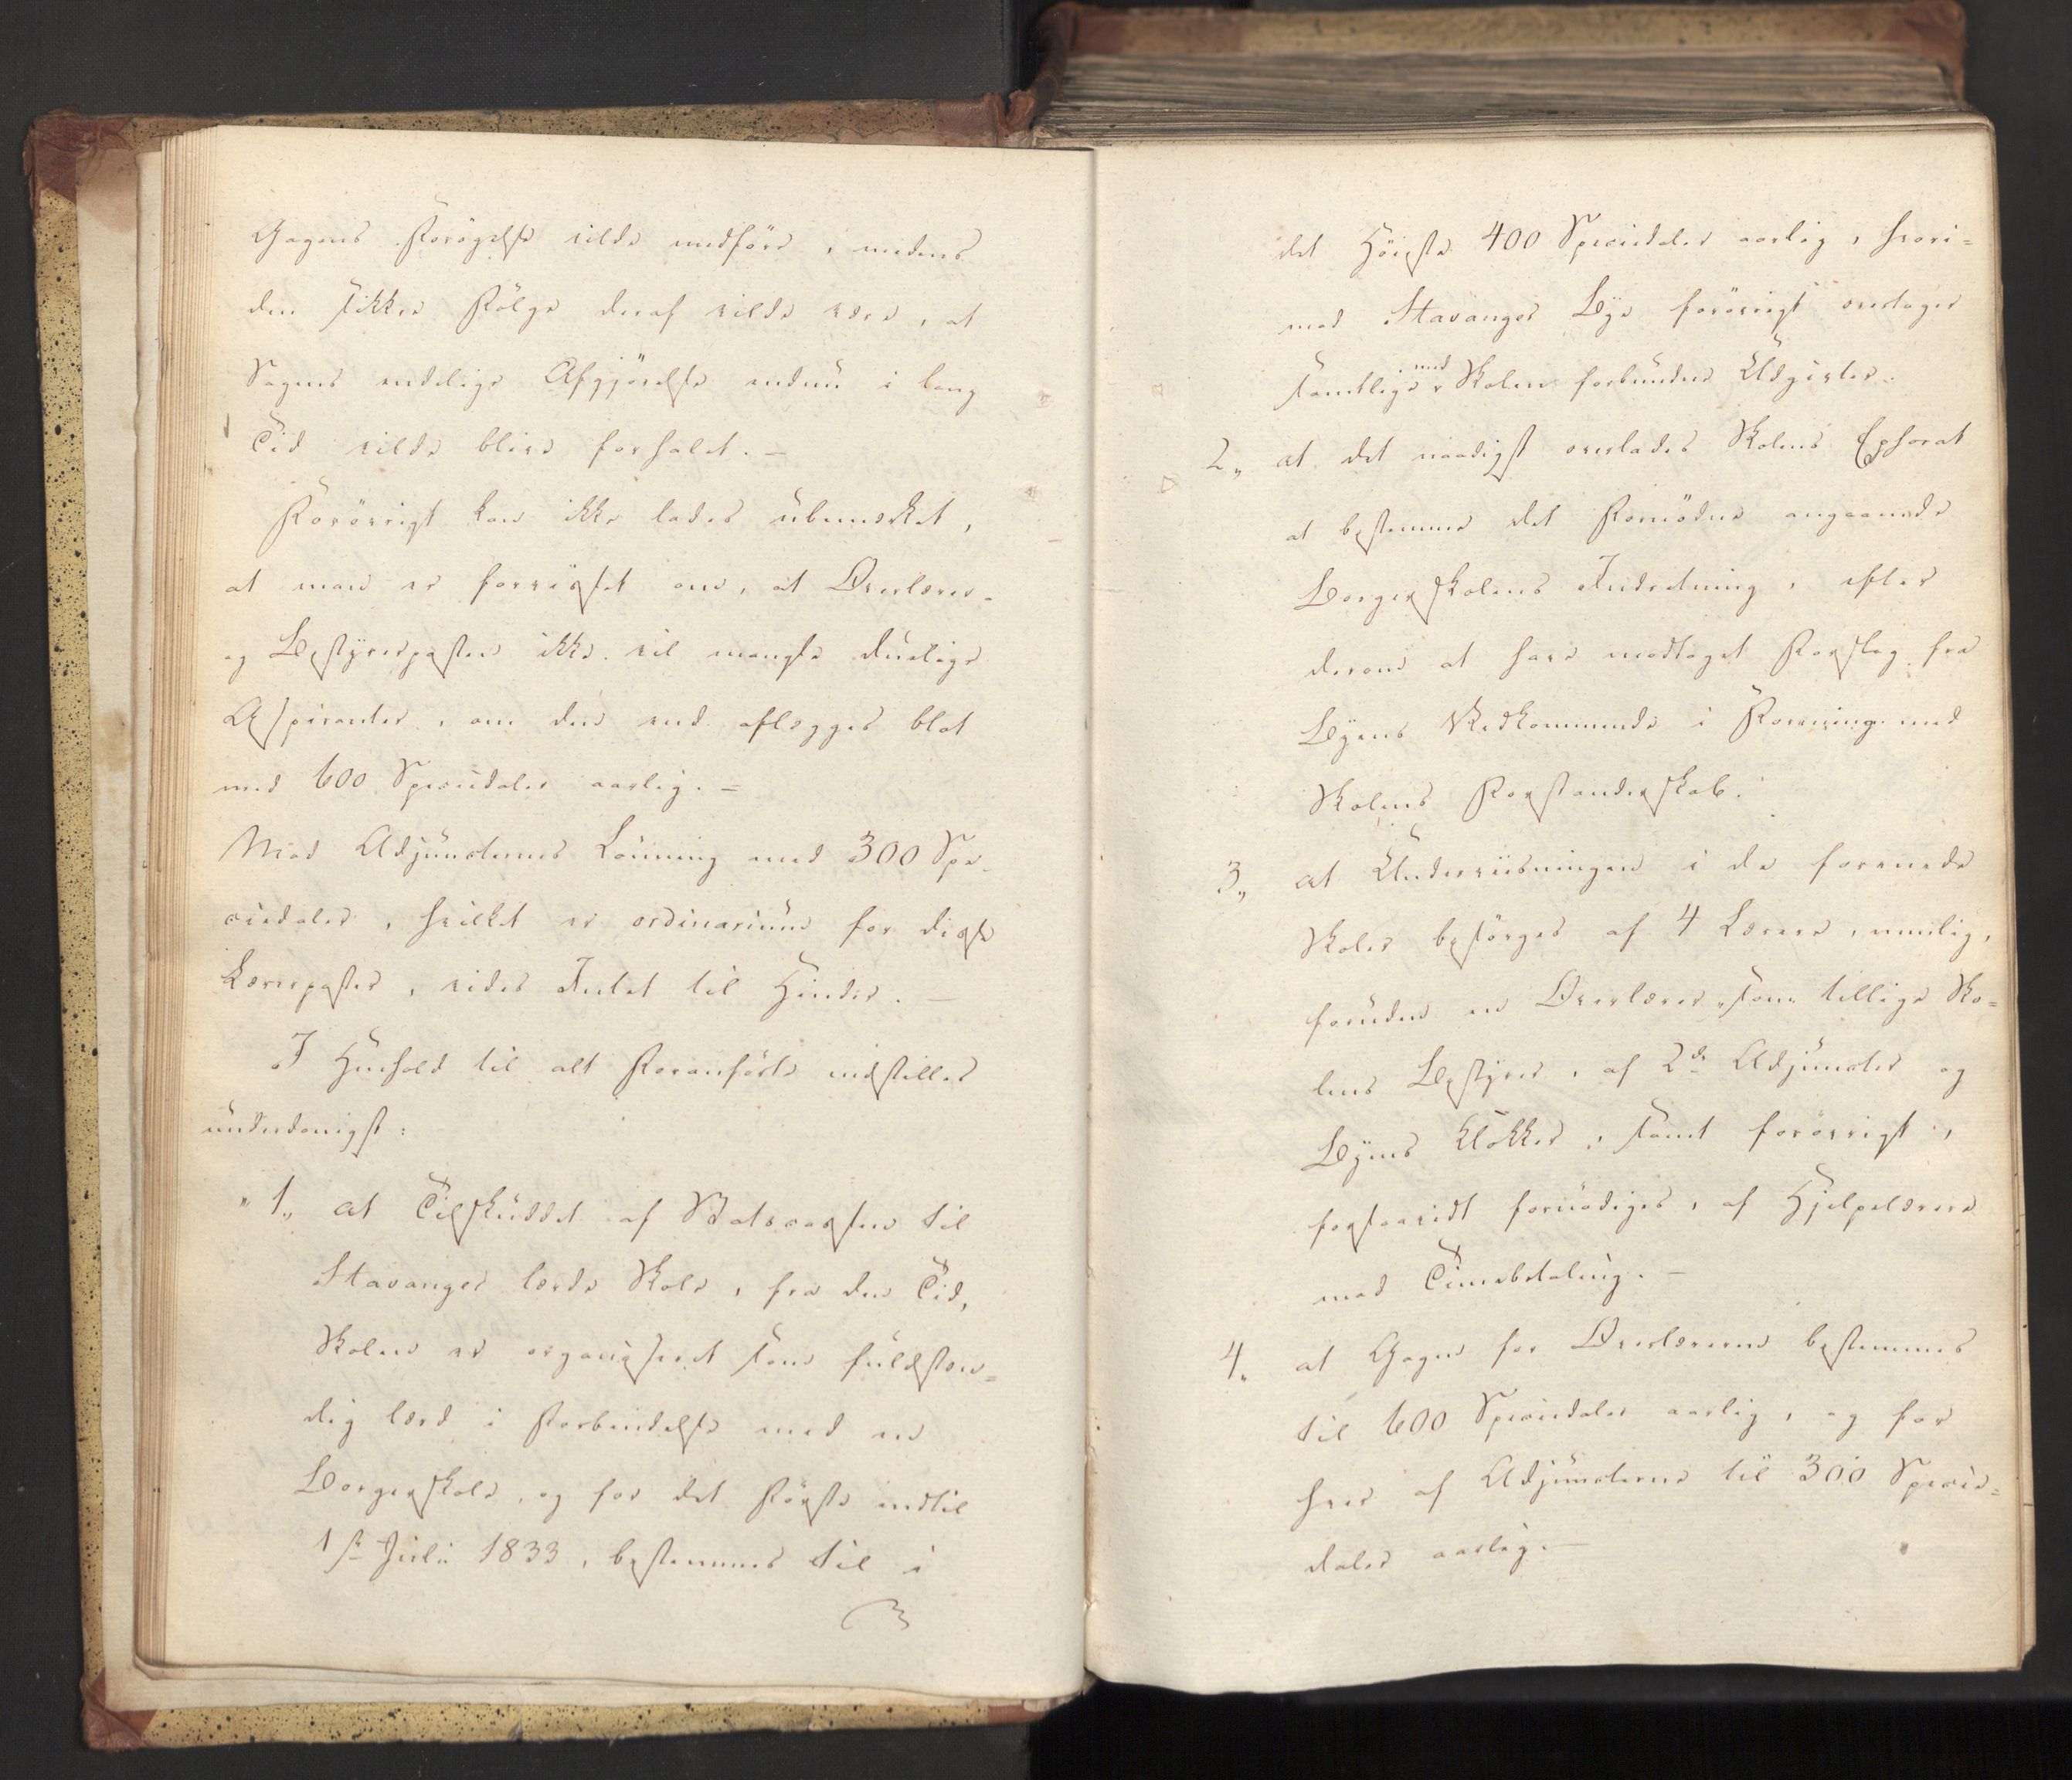 Gagens Forøgelse vilde medføre, medens
den sikkre Følge deraf vilde være, at
Sagens endelige Afgjørelse endnu i lang
Tid vilde blive forhalet. –
Forøvrigt kan ikke lades ubemerket,
at man er forvisset om, at Overlærer-
og Bestyrerposten ikke vil mangle duelige
Aspiranter, om den end aflægges blot
med 600 Speciedaler aarlig. –
Mod Adjuncternes Lønning med 300 Spe-
ciedaler, hvilket er ordinarium for disse
Lærerposter, vides Intet til Hinder. –
I Henhold til alt Foranførte indstilles
underdanigst:
" 1„ at Tilskuddet af Statscassen til
Stavanger lærde Skole, fra den Tid,
Skolen er organiseret som fuldstæn=
dig lærd i Forbindelse med en
Borgerskole, og for det Første indtil
1ste Juli 1833, bestemmes til i
det Høieste 400 Speciedaler aarlig, hvori=
mod Stavanger Bye forøvrigt overtager
samtlige med Skolen forbundne Udgivter.
2„ at det naadigst overlades Skolens Ephorat
at bestemme det Fornødne angaaende
Borgerskolens Indretning, efter
derom at have modtaget Forslag fra
Byens Vedkommende i Forening med
Skolens Forstanderskab.
3„ at Underviisningen i de forenede
Skoler besørges af 4 Lærere, nemlig,
foruden en Overlærer, som tillige Sko=
lens Bestyrer, af 2de Adjuncter og
Byens Klokker, samt forøvrigt,
forsaavidt fornødiges, af Hjelpelærere
mod Timebetaling. –
4„ at Gagen for Overlæreren bestemmes
til 600 Speciedaler aarlig, og for
hver af Adjuncterne til 300 Specie=
daler aarlig. –